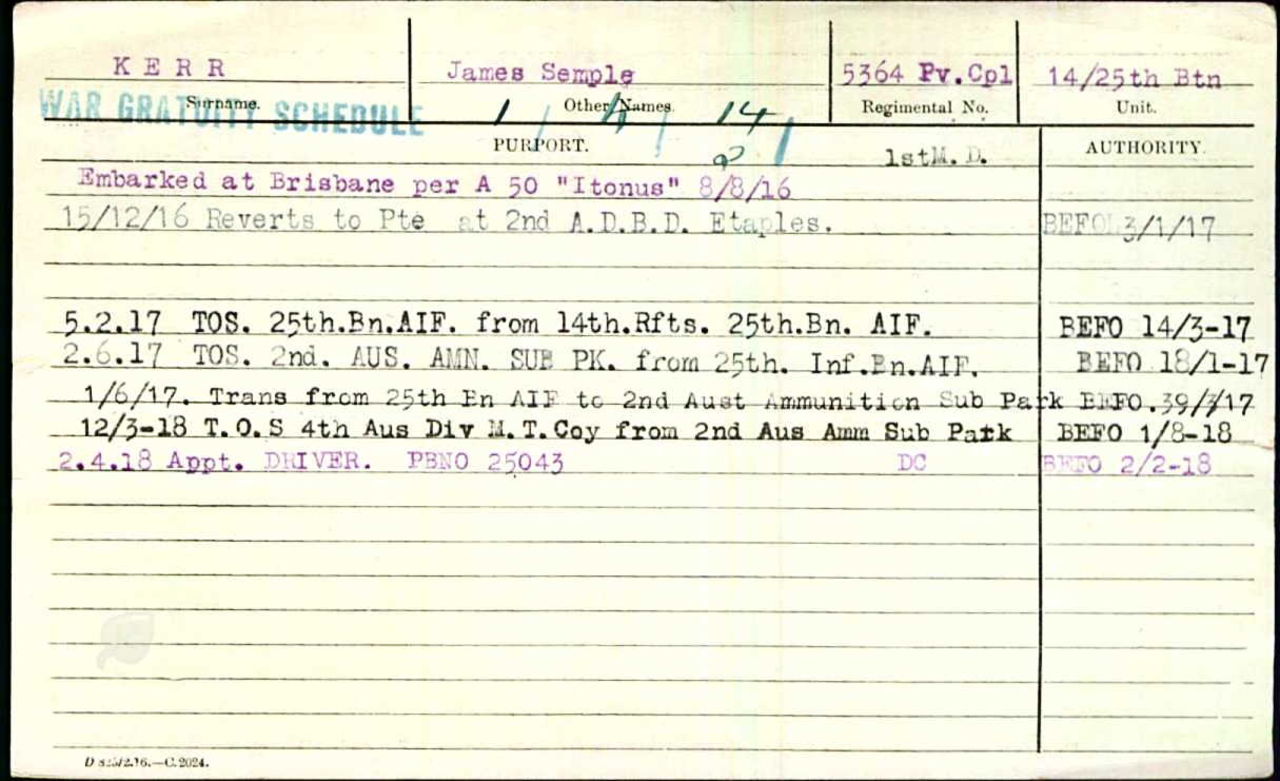 KERR James Semple 5364 Pv.Cpl 14/25th Btn
Surname. Other Names. Regimental No. Unit.
WAR GRATUITY SCHEDULE 14
PURPORT. 1stM.D. AUTHORITY.
Embarked at Brisbane per A 50 "Itonus" 8/8/16
15/12/16 Reverts to Pte at 2nd A.D.B.D. Etaples. BEFO 3/1/17
5.2.17 TOS. 25th.Bn.AIF. from 14th.Rfts. 25th.Bn. AIF. BEFO 14/3-17
2.6.17 TOS. 2nd. AUS. AMN. SUB PK. from 25th. Inf.Bn.AIF. BEFO 18/1-17
1/6/17. Trans from 25th Bn AIF to 2nd Aust Ammunition Sub Park BEFO.
12/3-18 T.O.S 4th Aus Div M.T.Coy from 2nd Aus Amm Sub Park BEFO 1/8-18
2.4.18 Appt. DRIVER. PBNO 25043 DC BEFO 2/2-18
C.2024.